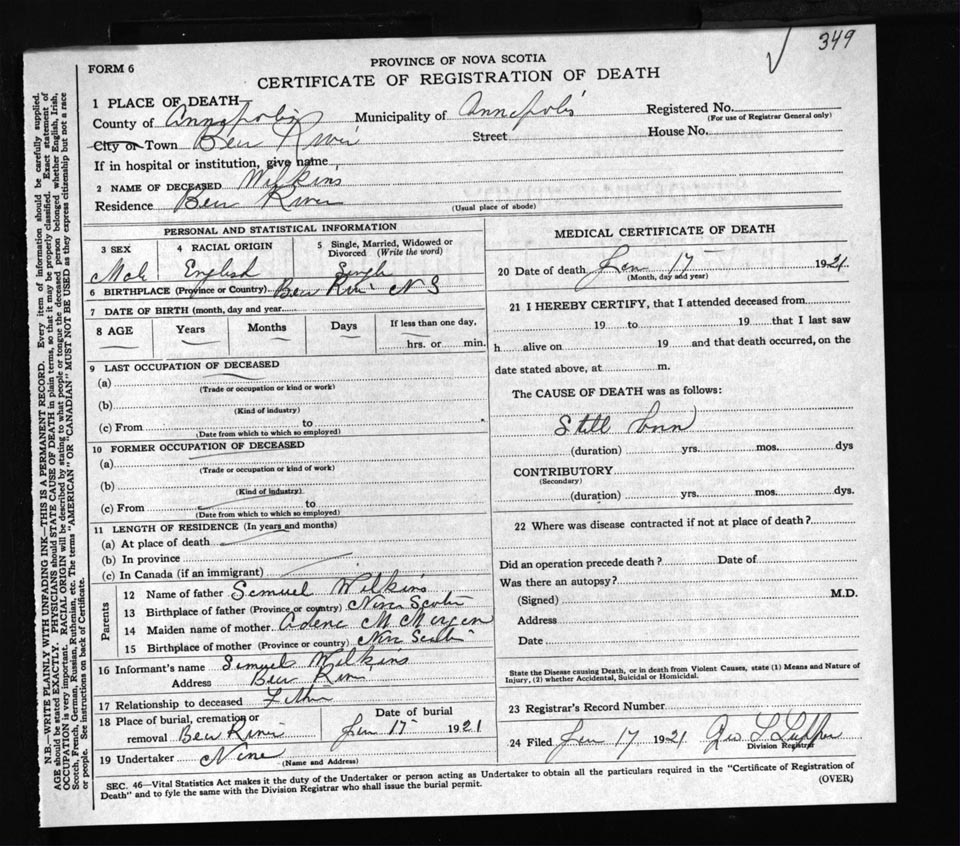 349
FORM 6
PROVINCE OF NOVA SCOTIA
CERTIFICATE OF REGISTRATION OF DEATH
1 PLACE OF DEATH
County of Annapolis Municipality of Annapolis Registered No.
(For use of Registrar General only)
City or Town Bear River Street House No.
If in hospital or institution, give name
2 NAME OF DECEASED Wilkins
Residence Bear River
(Usual place of abode)
PERSONAL AND STATISTICAL INFORMATION
3 SEX 4 RACIAL ORIGIN 5 Single, Married, Widowed or Divorced (Write the word)
Male English Single
6 BIRTHPLACE (Province or Country) Bear River N S
7 DATE OF BIRTH (month, day and year
8 AGE Years Months Days If less than one day,
hrs. or min.
9 LAST OCCUPATION OF DECEASED
(a)
(Trade or occupation or kind or work)
(b)
(Kind of industry)
(c) From to
(Date from which to which so employed)
10 FORMER OCCUPATION OF DECEASED
(a)
(Trade or occupation or kind of work)
(b)
(Kind of industry)
(c) From to
(Date from which to which so employed)
11 LENGTH OF RESIDENCE (In years and months)
(a) At place of death
(b) In province
(c) In Canada (if an immigrant)
Parents
12 Name of father Samuel Wilkins
13 Birthplace of father (Province or country) Nova Scotia
14 Maiden name of mother M
15 Birthplace of mother (Province or country) Nova Scotia
16 Informant's name Samuel Wilkins
Address Bear River
17 Relationship to deceased Father
18 Place of burial, cremation or Date of burial
removal Bear River Jan 17 1921
19 Undertaker None
(Name and Address)
MEDICAL CERTIFICATE OF DEATH
20 Date of death Jan 17 1921
(Month, day and year)
21 I HEREBY CERTIFY, that I attended deceased from
19 to 19 that I last saw
h alive on 19 and that death occurred, on the
date stated above, at m.
The CAUSE OF DEATH was as follows:
Still born
(duration) yrs. mos. dys
CONTRIBUTORY
(Secondary)
(duration) yrs. mos. dys.
22 Where was disease contracted if not at place of death?
Did an operation precede death? Date of
Was there an autopsy?
(Signed) M.D.
Address
Date
State the Disease causing Death, or in death from Violent Causes, state (1) Means and Nature of
Injury, (2) whether Accidental, Suicidal or Homicidal.
23 Registrar's Record Number
24 Filed Jan 17 1921 Geo L
Division Registrar
SEC. 46—Vital Statistics Act makes it the duty of the Undertaker or person acting as Undertaker to obtain all the particulars required in the "Certificate of Registration of
Death" and to fyle the same with the Division Registrar who shall issue the burial permit.
(OVER)
N.B.—WRITE PLAINLY WITH UNFADING INK—THIS IS A PERMANENT RECORD. Every item of information should be carefully supplied.
AGE should be stated EXACTLY. PHYSICIANS should STATE CAUSE OF DEATH in plain terms, so that it may be properly classified. Exact statement of
OCCUPATION is very important. RACIAL ORIGIN will be described by stating to what people or tongue the deceased person belonged whether English, Irish,
Scotch, French, German, Russian, Ruthenian, etc. The terms "AMERICAN" OR "CANADIAN" MUST NOT BE USED as they express citizenship but not a race
or people. See instructions on back of Certificate.